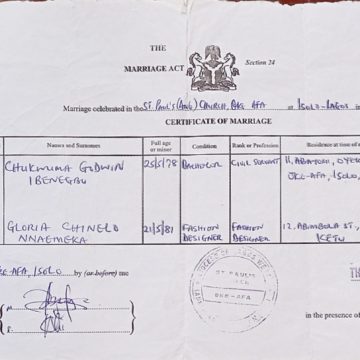 THE
MARRIAGE ACT
Section 24
Marriage celebrated in the ST. PAUL'S (ANG) CHURCH, OKE AFA at ISOLO-LAGOS in
CERTIFICATE OF MARRIAGE
Names and Surnames Full age or minor Condition Rank or Profession Residence at time of
CHUKWUMA GODWIN 25/5/78 BACHELOR CIVIL SERVANT
IBENEGBU OKE-AFA, ISOLO,
GLORIA CHINELO 21/5/81 FASHION DESIGNER FASHION DESIGNER 12, ABIMBOLA ST.,
NNAEMEKA IKETU
KE-AFA, ISOLO by (or before) me
ST PAUL'S
OKE-AFA
TH
in the presence of